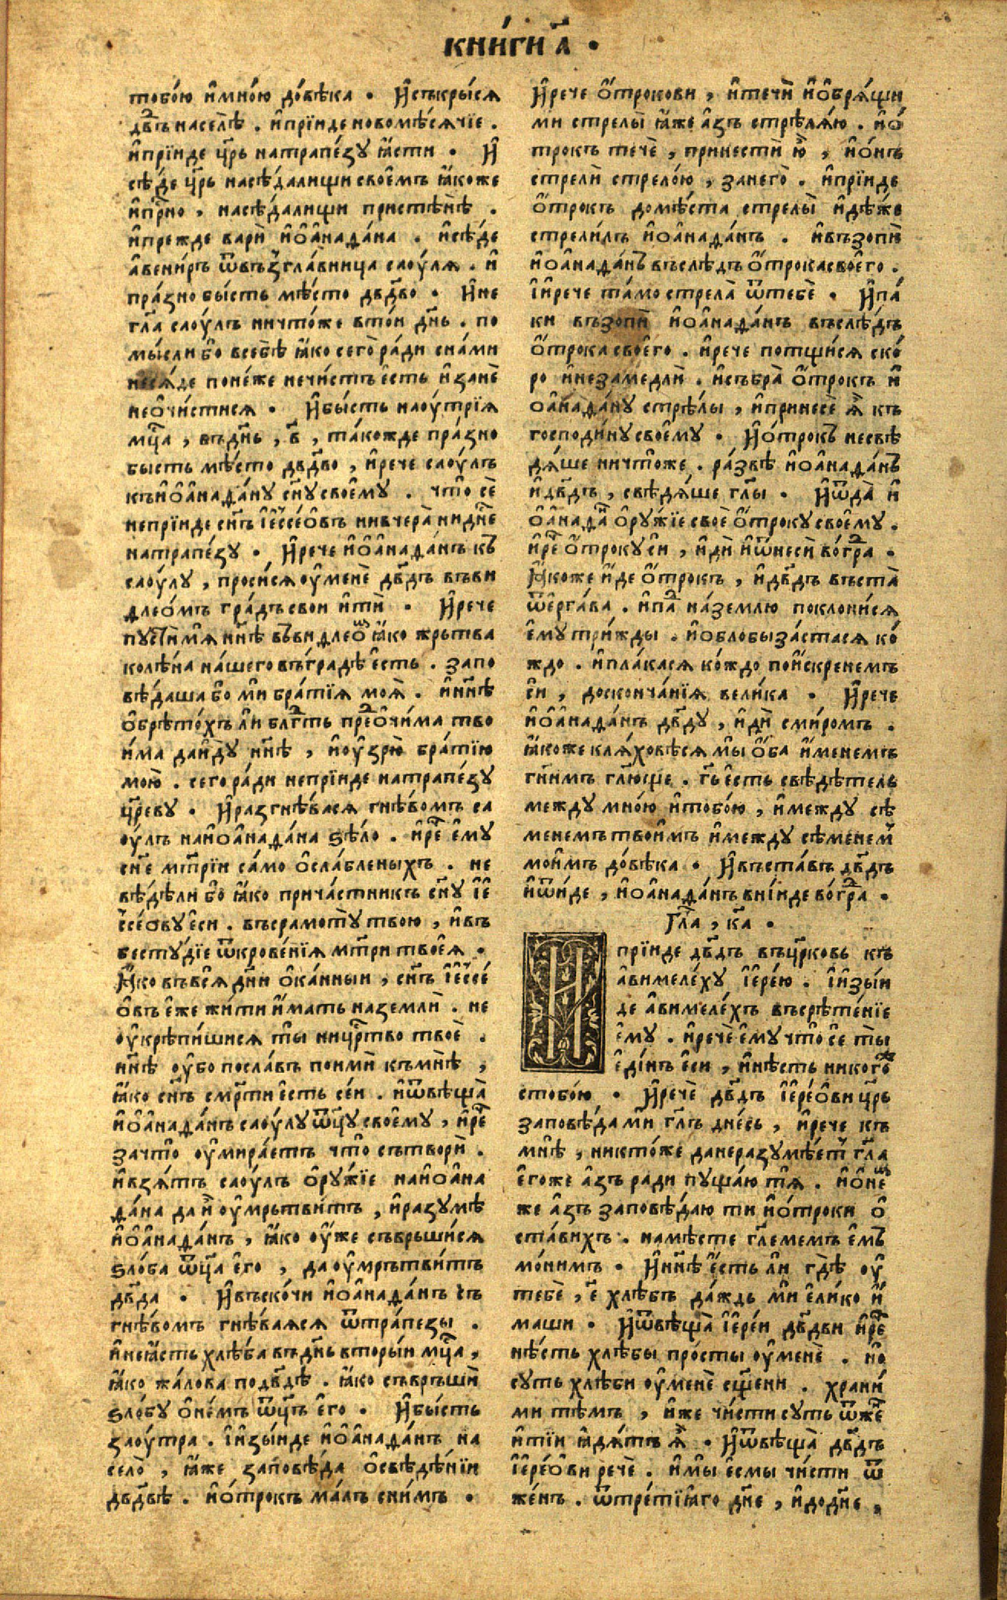 кни́ги а҃ .
тобо́ю и҆мно́ю до́вѣка . И҆съкры́сѧ
дв҃дъ населѣ̀ . и҆прїи́де новомѣ́сѧчїе .
и҆прїи́де цр҃ь натрапе́зу ꙗ҆́сти . И҆
сѣ́де цр҃ь насѣда́лищи своѐмъ ꙗ҆́коже
и҆при́сно , насѣда́лищи пристѣ́нѣ .
и҆пре́жде варѝ и҆ѻ҆анаѳа́на . и҆сѣ́де
а҆вени́ръ ѿвъзгла́вница саоу́лѧ . и҆
пра́зно бы́сть мѣ́сто дв҃дво . И҆не
гл҃а саоу́лъ ничто́же вто́и дн҃ь . по
мы́сли бо всебѣ̀ ꙗ҆́ко сего̀ ра́ди сна́ми
несѧ́де поне́же нечи́стъ е҆́сть и҆занѐ
неѻ҆чи́стисѧ . И҆бы́сть наоу́трїѧ
мц҃а , въдн҃ь , в҃ , та́кожде пра́зно
бы́сть мѣ́сто дв҃дво , и҆рече саоу́лъ
къи҆ѻ҆анаѳа́ну сн҃у своемꙋ . что̀ сѐ
непрїи́де сн҃ъ і҆ессе́ѻвъ нивчера̀ нидн҃е
натрапе́зу . И҆рече и҆ѻ҆анаѳа́нъ къ
саоу́лу , проси́сѧ оу҆менѐ дв҃дъ въви
длео́мъ гра́дъ свои и҆тѝ . И҆рече
пусти́ мѧ нн҃ѣ въвидлео́мъ ꙗ҆́ко жрътва
колѣ́на на́шего въгра́дѣ е҆́сть . запо
вѣ́даша бо ми бра́тїѧ моѧ̀ . и҆нн҃ѣ
ѻ҆брѣто́хъ ли блг҃ть преѻ҆чи́ма тво
и́ма даи́ду нн҃ѣ , и҆оу҆зрю̀ бра́тїю
мою̀ . сего ра́ди непрїи́де натрапе́зу
цр҃еву . И҆разгнѣ́васѧ гнѣ́вомъ са
оу́лъ наи҆ѻ҆анаѳа́на ѕѣ́ло . и҆рече е҆му
сн҃е мт҃ри́и са́мо ѻ҆сла́бленыхъ . не
вѣ́дѣли бо ꙗ҆́ко прича́стникъ сн҃у і҆е
ссе́ѻвуеси . въсрамоту́ твою , и҆въ
бесту́дїе ѿкрове́нїѧ мт҃ри твоеѧ .
Ꙗ҆́ко въвсѧ дн҃и ѻ҆ка́нныи , сн҃ъ і҆ессе́
ѻ҆въ е҆́же жи́ти и҆́мать наземлѝ . не
оу҆крѣпи́шисѧ ты ницр҃тво твоѐ .
нн҃ѣ оу҆бо посла́въ поимѝ къмнѣ̀ ,
ꙗ҆́ко сн҃ъ сме́рти е҆́сть сеи́ . и҆ѿвѣща̀
и҆ѻ҆анаѳа́нъ саоу́лу ѿц҃у своему , и҆рече
зачто̀ оу҆мира́етъ что̀ сътворѝ .
и҆взѧ́тъ саоу́лъ ѻ҆ру́жїе наи҆ѻ҆ана
ѳа́на да и҆ оу҆мръти́тъ , и҆разумѣ
и҆ѻ҆анаѳа́нъ , ꙗ҆́ко оу҆́же съврьши́сѧ
ѕло́ба ѿц҃а е҆го , да оу҆мръти́тъ
дв҃да . И҆въско́чи и҆ѻ҆анаѳа́нъ съ
гнѣ́вомъ гнѣ́ваѧсѧ ѿтрапе́зы .
и҆неꙗ҆́сть хлѣ́ба въдн҃ь вторы́и мц҃а ,
ꙗ҆́ко жа́лова подв҃дѣ . ꙗ҆́ко съврьшѝ
ѕло́бу ѻ҆не́мъ ѿц҃ъ е҆го . И҆бы́сть
заоу́тра . і҆изы́иде и҆ѻ҆анаѳа́нъ на
село̀ , ꙗ҆́же заповѣ́да ѻ҆свѣдѣ́нїи
дв҃двѣ . и҆ѻ҆́трокъ ма́лъ сни́мъ .
И҆рече ѻ҆́трокови , и҆тецѝ и҆ѻ҆брѧ́щи
ми стрелы̀ ꙗ҆́же а҆́зъ стрѣлѧ́ю . и҆ѻ҆́
трокъ течѐ , принестѝ ю҆̀ , и҆ѻ҆́нъ
стрелѝ стрело́ю , занего̀ . и҆прїи́де
ѻ҆́трокъ домѣ́ста стрелы̀ и҆дѣ́же
стрели́лъ и҆ѻ҆анаѳа́нъ . и҆възопѝ
и҆ѻ҆анаѳа́нъ въслѣ́дъ ѻ҆́трокасвоего .
І҆ирече та́мо стрела̀ ѿтебѐ . И҆па́
ки възопѝ и҆ѻ҆анаѳа́нъ въслѣ́дъ
ѻ҆́трока своего . и҆рече потщи́сѧ ско́
ро и҆незаме́длѝ . и҆събра̀ ѻ҆́трокъ и҆
ѻ҆анаѳа́ну стрѣ́лы , и҆принесѐ ѧ҆̀ къ
господи́ну своему . И҆ѻ҆́трокъ несвѣ
дѧ́ше ничто́же . ра́звѣ и҆ѻ҆анаѳа́нъ
и҆дв҃дъ , свѣдѧ́ше гл҃ы . И҆ѿда̀ и҆
ѻ҆анаѳа́нъ ѻ҆ру́жїе своѐ ѻ҆́трокусвоему .
и҆рече ѻ҆́трокусѝ , и҆дѝ и҆ѿнесѝ во́гра .
Ꙗ҆́коже и҆́де ѻ҆́трокъ , и҆дв҃дъ въста̀
ѿерга́ва . и҆па́д на́землю поклони́сѧ
е҆му три́жды . и҆ѻблобыза́стасѧ ко́
ждо . и҆пла́касѧ ко́ждо поискренемъ
си , досконча́нїѧ вели́ка . И҆рече
и҆ѻ҆анаѳа́нъ дв҃ду , и҆дѝ сми́ромъ .
ꙗ҆́коже клѧ́ховѣсѧ мы̀ ѻ҆́ба и҆́менемъ
гн҃имъ гл҃юще . гь҃ е҆́сть свѣдѣ́тель
между мно́ю и҆тобо́ю , и҆между сѣ́
менемъ твои́мъ и҆между сѣ́менемъ
мои́мъ до́вѣка . И҆въста́въ дв҃дъ
и҆ѿи́де , и҆ѻ҆анаѳа́нъ вни́иде во́гра .
Гла̀ , ка҃ .
И҆прїи́де дв҃дъ въцр҃ковь къ
а҆вимеле́ху і҆ере́ю . і҆изы́и
де а҆вимеле́хъ въсрѣ́тенїе
е҆му . и҆речѐ е҆му что̀ се ты̀
е҆ди́нъ е҆си , и҆нѣ́сть никого
стобо́ю . И҆речѐ дв҃дъ і҆ере́ѻви цр҃ь
заповѣ́да ми гл҃ъ дне́сь , и҆рече къ
мнѣ̀ , никто́же данеразумѣ́етъ гл҃а
е҆го́же а҆́зъ ра́ди пуща́ю тѧ̀ . и҆ѻ҆не́м
же а҆́зъ заповѣ́даю ти и҆ѻ҆́троки ѻ҆
ста́вихъ . намѣ́сте гл҃емемъ е҆мъ
мо́нимъ . И҆нн҃ѣ е҆́сть ли гдѣ̀ оу҆
тебѐ , е҃ хлѣ́бъ да́ждь ми е҆ли́ко и҆́
маши . И҆ѿвѣща̀ і҆ере́и дв҃дви и҆рече
нѣ́сть хлѣ́бы про́сты оу҆менѐ . но
суть хлѣ́би оу҆менѐ сщ҃ени . храни́
ми тѣмъ , и҆́же чи́сти суть ѿже́н
и҆ті́и ꙗ҆дѧ́тъ ѧ҆̀ . И҆ѿвѣща̀ дв҃дъ
і҆ере́ѻви речѐ . и҆мы̀ е҆смы чи́сти ѿ
же́нъ . ѿтре́тїꙗго дн҃е , и҆додн҃е ,